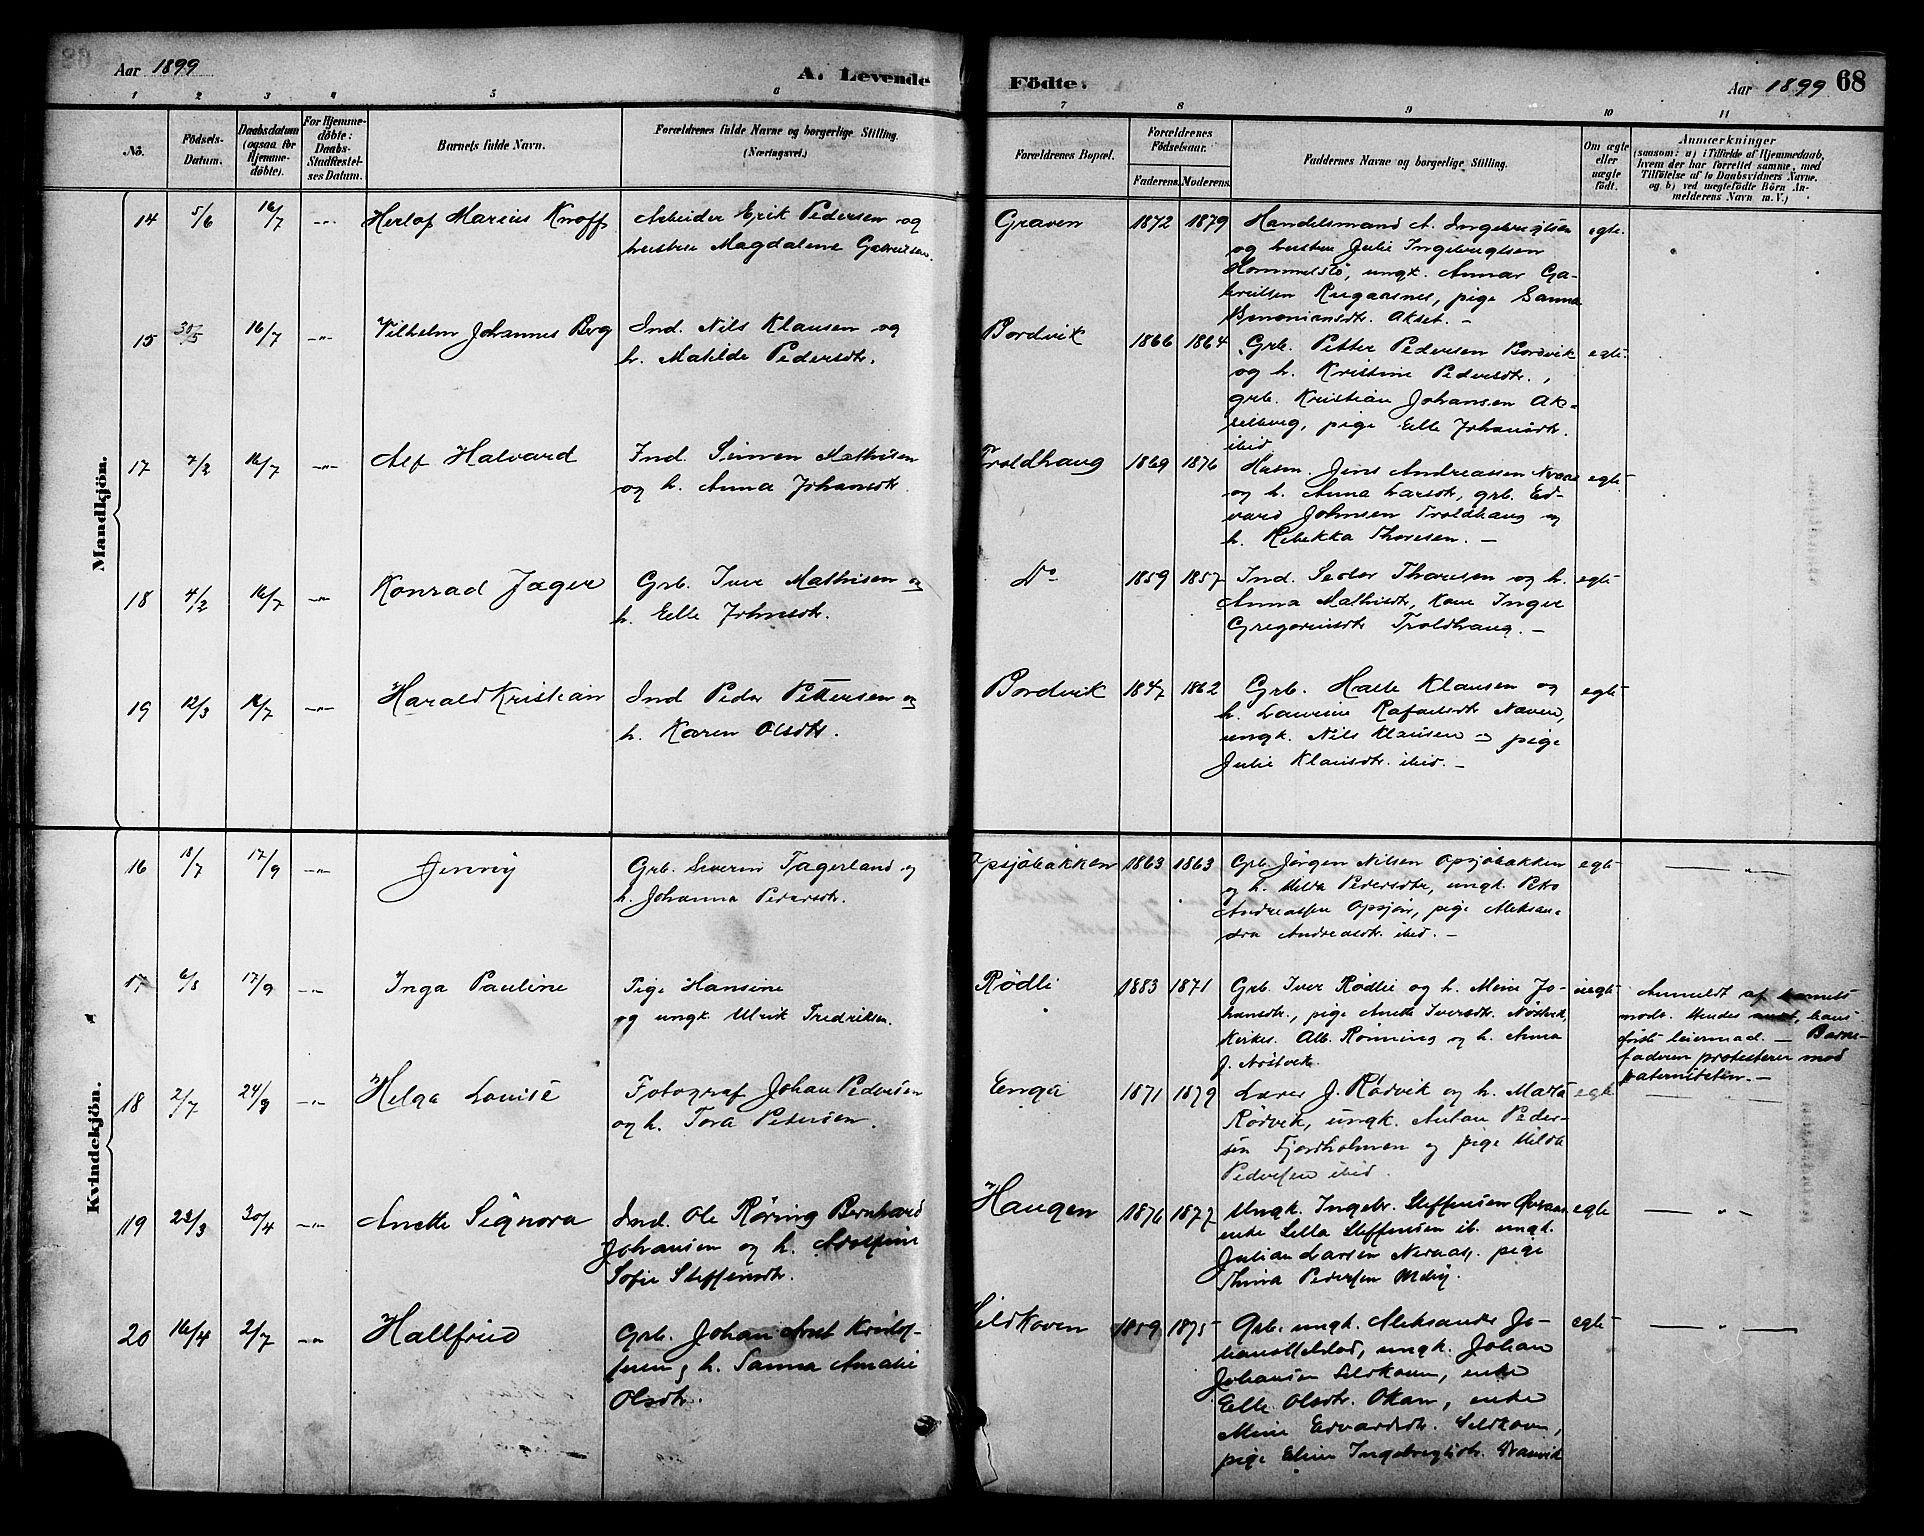 Aar 1899
A. Levende
Födte.
Aar 1899
68
1 2 3 4 5 6 7 8 9 10 11
No.
Födsels-
Datum.
Daabsdatum
(ogsaa for
Hjemme-
döbte).
For Hjemme-
döbte:
Daabs-
Stadfæstel-
ses Datum.
Barnets fulde Navn.
Forældrenes fulde Navne og borgerlige Stilling.
(Næringsvei.)
Forældrenes Bopæl.
Forældrenes
Födselsaar.
Faderens.
Moderens.
Faddernes Navne og borgerlige Stilling.
Om ægte
eller
uægte
födt.
Anmærkninger
(saasom: a) i Tilfælde af Hjemmedaab,
hvem der har forrettet samme, med
Tilföielse af to Daabsvidners Navne.
og b) ved uægtefödte Börn An-
melderens Navn m. V.)
Mandkjön.
14 5/6 16/7 -"- Herlof Marius Knoff
Arbeider Erik Pedersen og
hustru Magdalene Gabrielsen.
Graven 1872 1879
Handelsmand A. Ingebrigtsen
og hustru Julie Ingebrigtsen
Hommelstø, ungk. Annar Ga-
brielsen Rugaasnes, pige Sanna
Benoniansdtr. Akset. -
egte.
15 30/5 16/7 -"- Vilhelm Johannes Berg
Ind. Nils Klausen og
h. Matilde Pedersdtr.
Bordvik 1866 1864
Grb. Petter Pedersen Bordvik
og h. Kristine Pedersdtr.,
grb. Kristian Johansen Ak-
selberg, pige Elle Johansdtr.
ibid
egte.
17 7/2 16/7 -"- Alf Halvard
Ind. Simen Mathisen
og h. Anna Johansdtr.
Troldhaug 1869 1876
Husm. Jens Andreassen
og h. Anna Larsdtr, grb. Ed-
vard Johnsen Troldhaug og
h. Rebekka Thoresen. -
egte
18 4/2 16/7 -"- Konrad Jæger
Grb. Iver Mathisen og
h. Elle Johnsdtr.
Do 1859 1857
Ind. Peder Thoresen og h.
Anna Mathisdtr, Kone Inger
Gregoriusdtr Troldhaug. -
egte
19 12/3 16/7 -"- Harald Kristian
Ind Peder Pettersen og
h. Karen Olsdtr.
Bordvik 1847 1862
Grb. Halle Klausen og
h. Laurine Rafaelsdtr Naven,
ungk. Nils Klausen og pige
Julie Klausdtr. ibid. -
egte
Kvindekjön.
16 18/7 17/9 -"- Jenny
Grb. Severin Fagerland og
h. Johanna Pedersdtr.
Opsjöbakken 1863 1863
Grb Jörgen Nilsen Opsjöbakken
og h. Hilda Pedersdtr, ungk. Peter
Andreassen Opsjön, pige Aleksan-
dra Andreasdtr. ibid. -
egte - " -
17 6/8 17/9 -"- Inga Pauline
Pige Hansine
og ungk. Ulrik Fredriksen.
Rödli 1883 1871
Grb. Iver Rödli og h. Mine Jo-
hansdtr., pige Anette Iversdtr. Nöstvik
Kirkes. Alb. Rönning og h. Anna
J. Nöstvik
uegte
Anmeldt af barnets
moder. Hendes andet, hans
förste leiermaal. - Barne-
faderen protesterer mod
paterniteten. -
18 2/7 24/9 -"- Helga Louise
Fotograf Johan Pedersen
og h. Tora Petersen.
Enga 1871 1879
Lærer J. Rödvik og h. Marta
Rödvik, ungk. Anton Peder-
sen Fjordholmen og pige Hilda
Pedersen ibid.
egte - " -
19 23/3 30/4 -"- Anette Signora
Ind. Ole Röring Bernhard
Johansen og h. Adolfine
Sofie Steffensdtr.
Haugen 1876 1877
Ungk. Ingebr. Steffensen
enke Sella Steffensen ib. ungk.
Julian Larsen Neraas. pige
Thina Pedersen
egte - " -
20 16/4 2/7 -"- Hallfrid
Grb. Johan Arnt Kristof-
fersen og h. Sanna Amalie
Olsdtr.
Sildhoven 1859 1875
Grb. ungk. Aleksander Jo-
ungk. Johan
Johansen Sildhoven, enke
Elle Olsdtr. Okan, enke
Mine Edvardsdtr. Sildhovn,
pige Eline Ingebrigtsdtr.
egte - " -